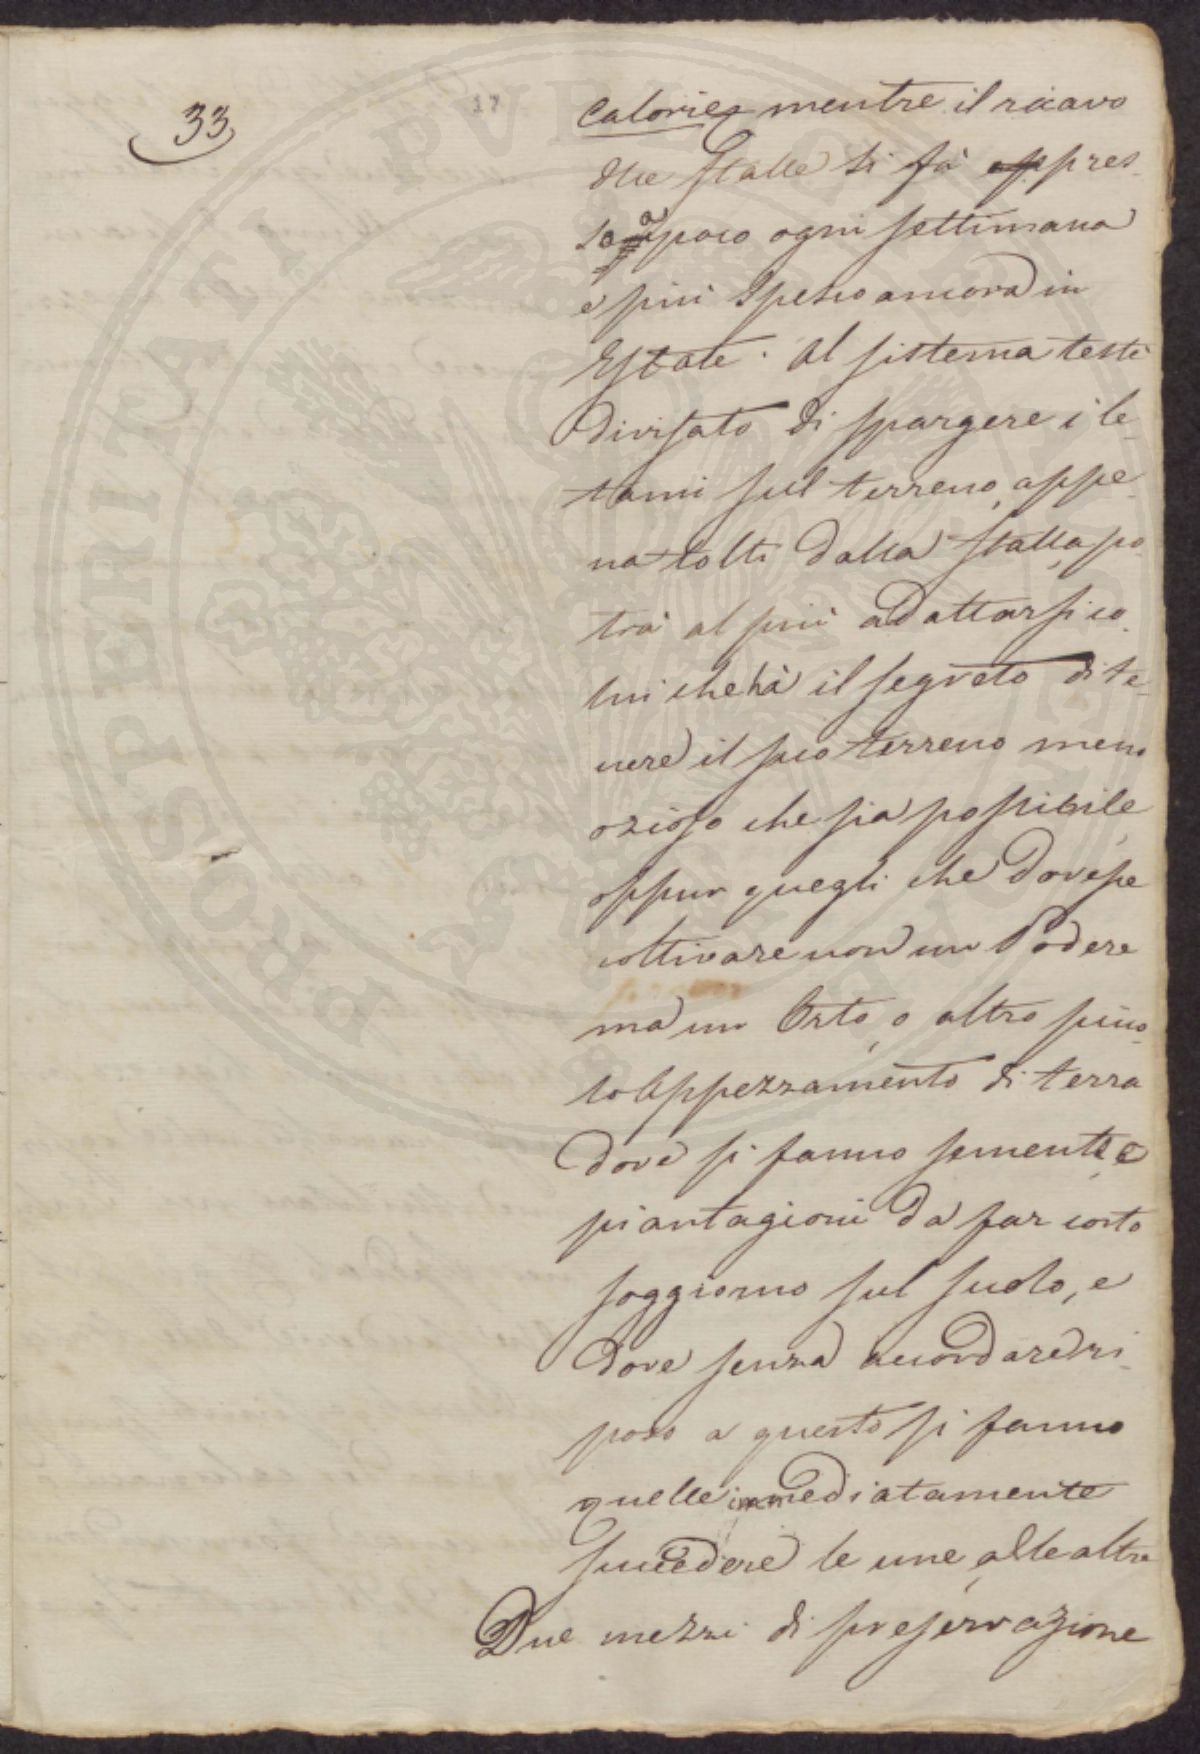 33
17
calorie, mentre il ricavo
dlle stalle si fà appres-
so a poco ogni settimana
e più spesso ancora in
Estate. Al sistema testè
divisato di spargere i le-
tami sul terreno, appe-
na tolti dalla stalla, po-
trà al più adattarsi co-
lui che hà il segreto di te-
nere il suo terreno meno
ozioso che sia possibile,
oppur quegli che dovesse
coltivare non un Podere
ma un Orto, o altro picco-
lo Appezzamento di terra
dove si fanno semente, e
piantagioni da far corto
soggiorno sul suolo, e
dove senza accordare ri-
poso a questo si fanno
quelle immediatamente
succedere le une, alle altre
Due mezzi di preservazione
PROSPERITATI PVBLICAE